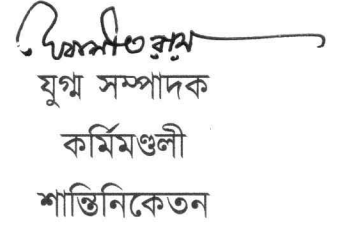 দেবাশীত রায়
যুগ্ম সম্পাদক
কর্মিমণ্ডলী
শান্তিনিকেতন